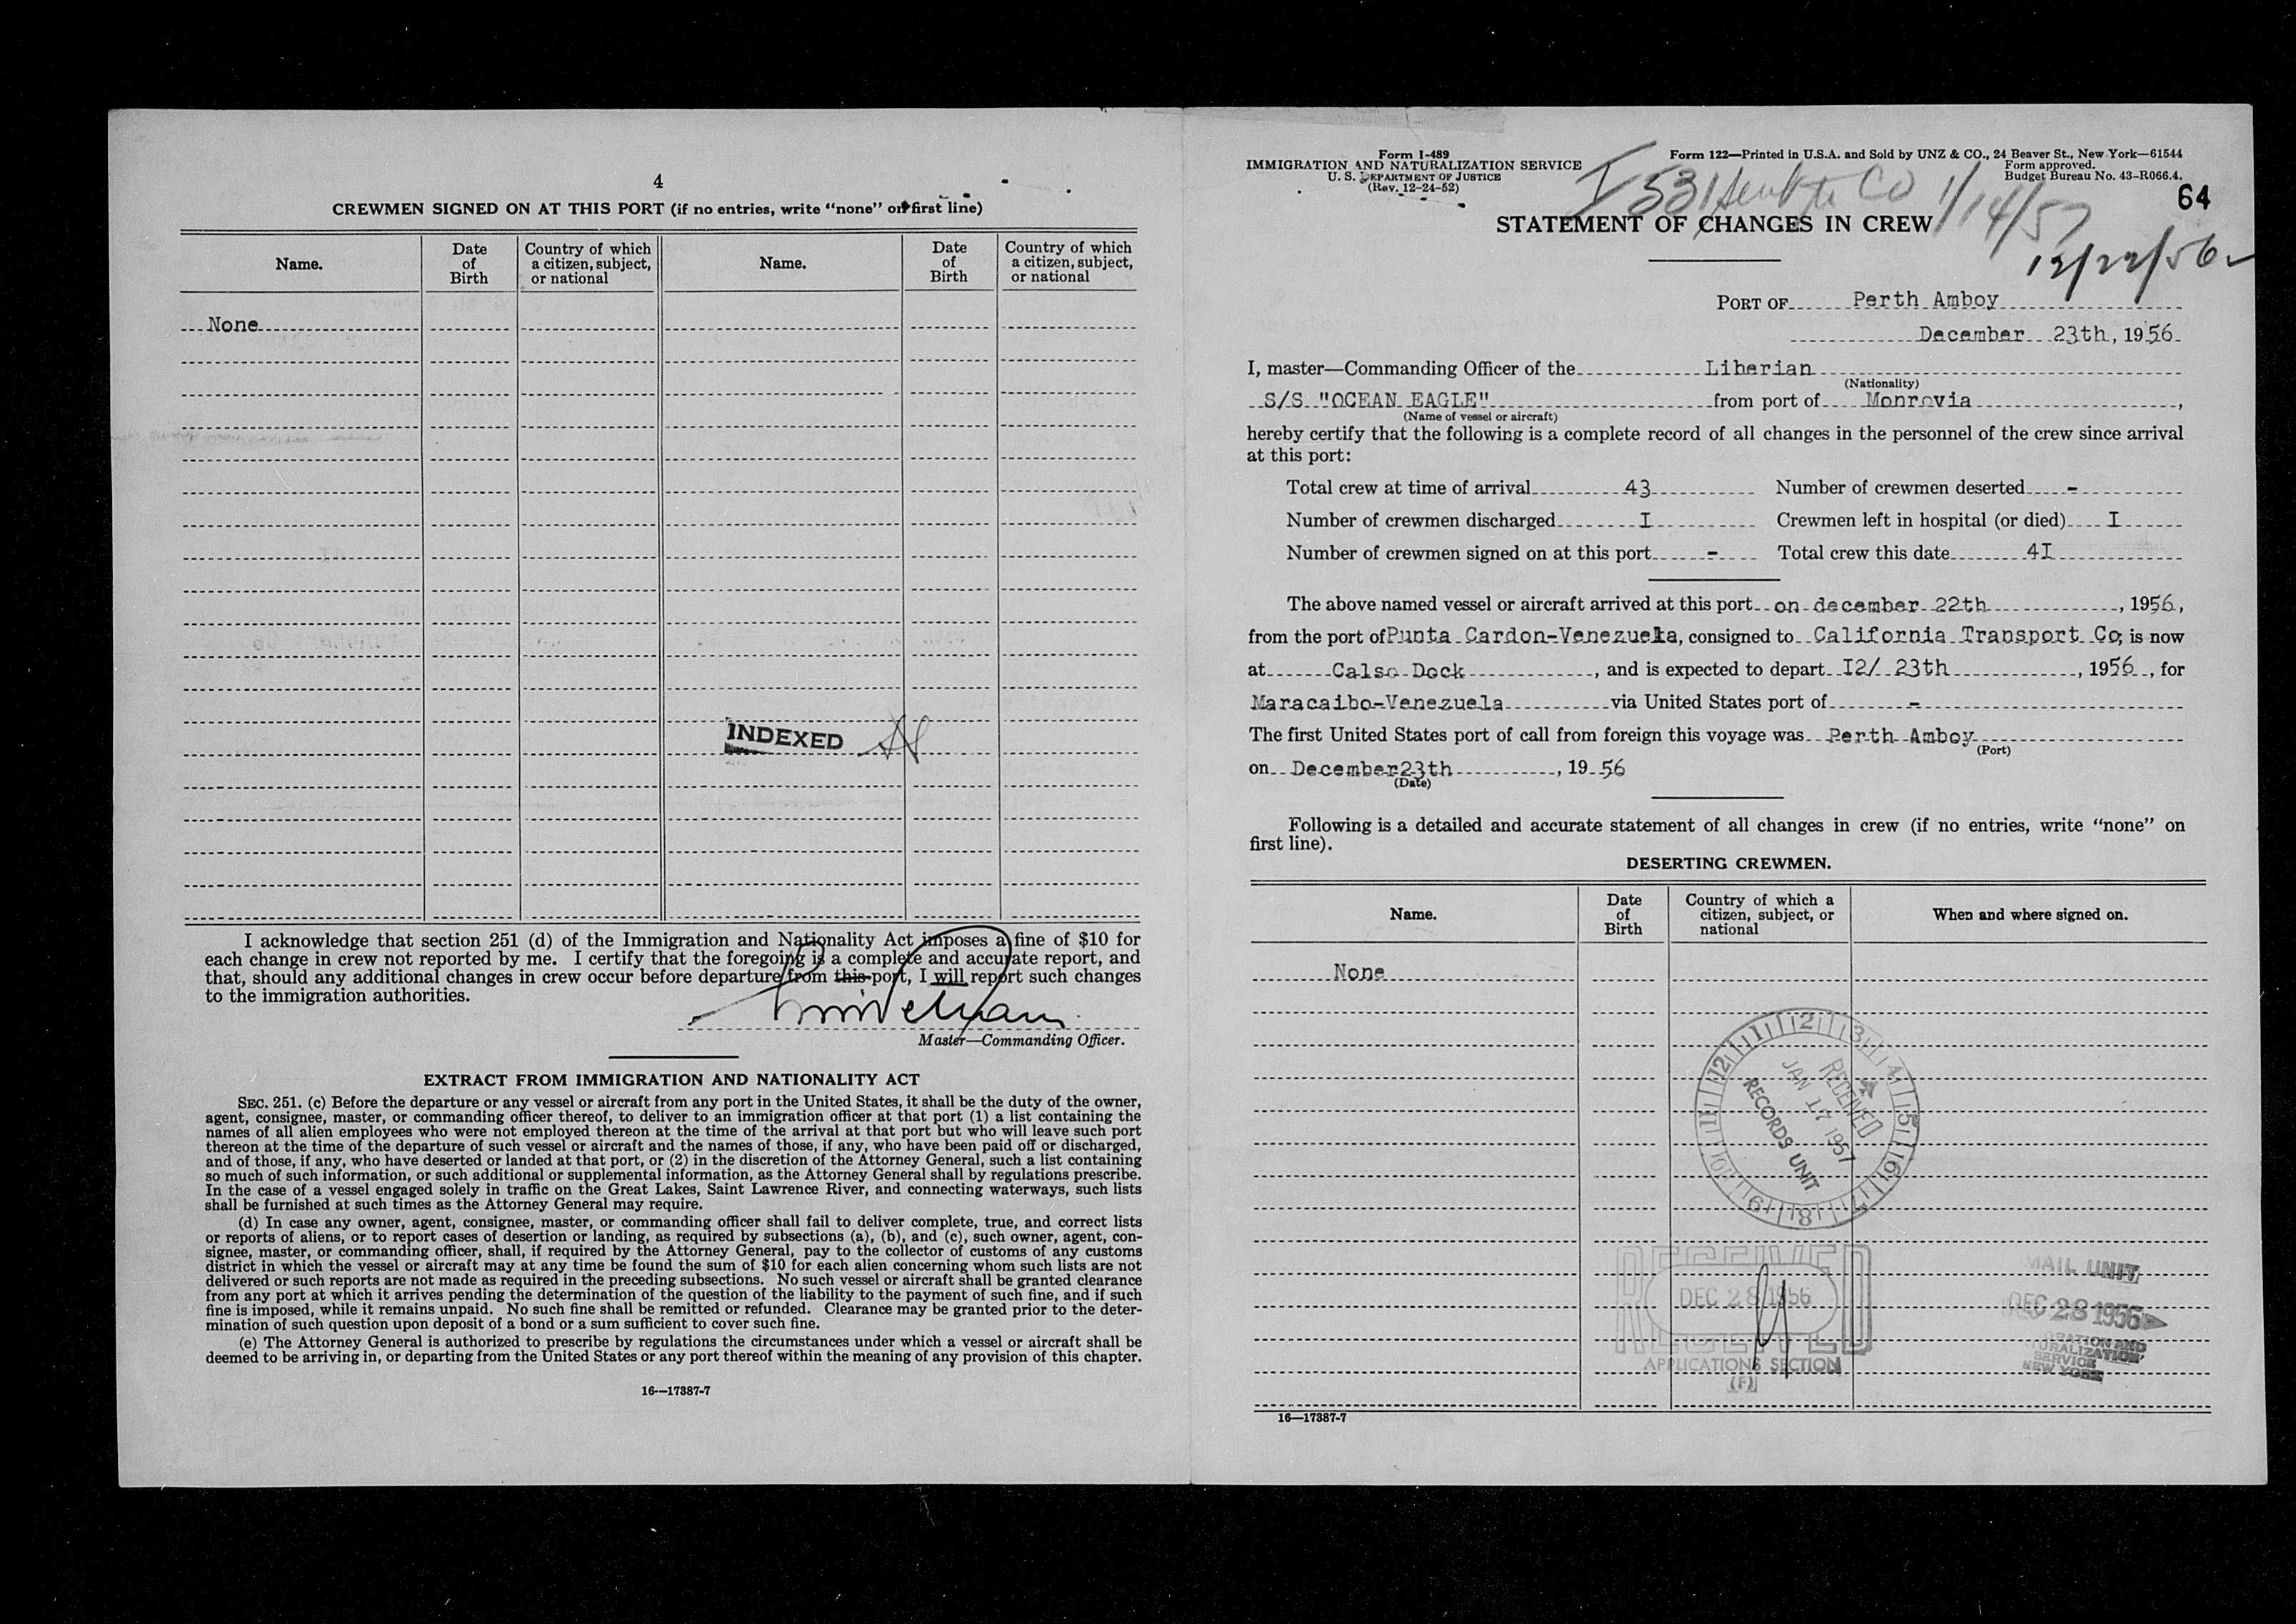 4
CREWMEN SIGNED ON AT THIS PORT (if no entries, write "none" on first line)
Name.
Date of Birth
Country of which a citizen, subject, or national
Name.
Date of Birth
Country of which a citizen, subject, or national
None
INDEXED
I acknowledge that section 251 (d) of the Immigration and Nationality Act imposes a fine of $10 for
each change in crew not reported by me. I certify that the foregoing is a complete and accurate report, and
that, should any additional changes in crew occur before departure from this port, I will report such changes
to the immigration authorities.
Master—Commanding Officer.
EXTRACT FROM IMMIGRATION AND NATIONALITY ACT
SEC. 251. (c) Before the departure or any vessel or aircraft from any port in the United States, it shall be the duty of the owner,
agent, consignee, master, or commanding officer thereof, to deliver to an immigration officer at that port (1) a list containing the
names of all alien employees who were not employed thereon at the time of the arrival at that port but who will leave such port
thereon at the time of the departure of such vessel or aircraft and the names of those, if any, who have been paid off or discharged,
and of those, if any, who have deserted or landed at that port, or (2) in the discretion of the Attorney General, such a list containing
so much of such information, or such additional or supplemental information, as the Attorney General shall by regulations prescribe.
In the case of a vessel engaged solely in traffic on the Great Lakes, Saint Lawrence River, and connecting waterways, such lists
shall be furnished at such times as the Attorney General may require.
(d) In case any owner, agent, consignee, master, or commanding officer shall fail to deliver complete, true, and correct lists
or reports of aliens, or to report cases of desertion or landing, as required by subsections (a), (b), and (c), such owner, agent, con-
signee, master, or commanding officer, shall, if required by the Attorney General, pay to the collector of customs of any customs
district in which the vessel or aircraft may at any time be found the sum of $10 for each alien concerning whom such lists are not
delivered or such reports are not made as required in the preceding subsections. No such vessel or aircraft shall be granted clearance
from any port at which it arrives pending the determination of the question of the liability to the payment of such fine, and if such
fine is imposed, while it remains unpaid. No such fine shall be remitted or refunded. Clearance may be granted prior to the deter-
mination of such question upon deposit of a bond or a sum sufficient to cover such fine.
(e) The Attorney General is authorized to prescribe by regulations the circumstances under which a vessel or aircraft shall be
deemed to be arriving in, or departing from the United States or any port thereof within the meaning of any provision of this chapter.
16—17387-7
Form I-489
IMMIGRATION AND NATURALIZATION SERVICE
U. S. DEPARTMENT OF JUSTICE
(Rev. 12-24-52)
Form 122—Printed in U.S.A. and Sold by UNZ & CO., 24 Beaver St., New York—61544
Form approved.
Budget Bureau No. 43-R066.4.
64
I 531 sent to CO 1/14/57
STATEMENT OF CHANGES IN CREW
12/22/56
PORT OF Perth Amboy
December 23th, 1956
I, master—Commanding Officer of the Liberian
(Nationality)
S/S "OCEAN EAGLE" from port of Monrovia,
(Name of vessel or aircraft)
hereby certify that the following is a complete record of all changes in the personnel of the crew since arrival
at this port:
Total crew at time of arrival 43 Number of crewmen deserted -
Number of crewmen discharged I Crewmen left in hospital (or died) I
Number of crewmen signed on at this port - Total crew this date 4I
The above named vessel or aircraft arrived at this port on december 22th, 1956,
from the port of Punta Cardon-Venezuela, consigned to California Transport Co; is now
at Calso Dock, and is expected to depart I2/ 23th, 1956, for
Maracaibo-Venezuela via United States port of -
The first United States port of call from foreign this voyage was Perth Amboy
(Port)
on December 23th, 1956
(Date)
Following is a detailed and accurate statement of all changes in crew (if no entries, write "none" on
first line).
DESERTING CREWMEN.
Name.
Date of Birth
Country of which a citizen, subject, or national
When and where signed on.
None
12 1 2 3 4 5 6 7 8 9 10 11
RECEIVED
JAN 17 1957
RECORDS UNIT
RECEIVED
DEC 28 1956
APPLICATIONS SECTION
(F)
MAIL UNIT
DEC 28 1956
NEW YORK
16—17387-7